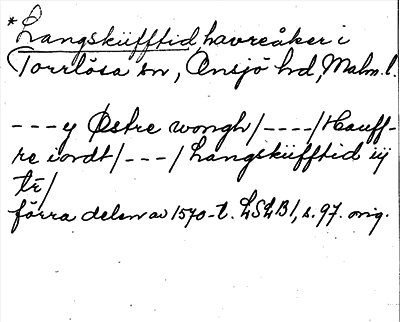 *Langskiifftid havreåker i
Torrlösa sn, Onsjö hd, Malm. l.
---y Østre wongh/----/Hauff-
re iordt/---/Langskiifftid iij
tr/
förra delen av 1570-t. LSLB1, s. 97. orig.